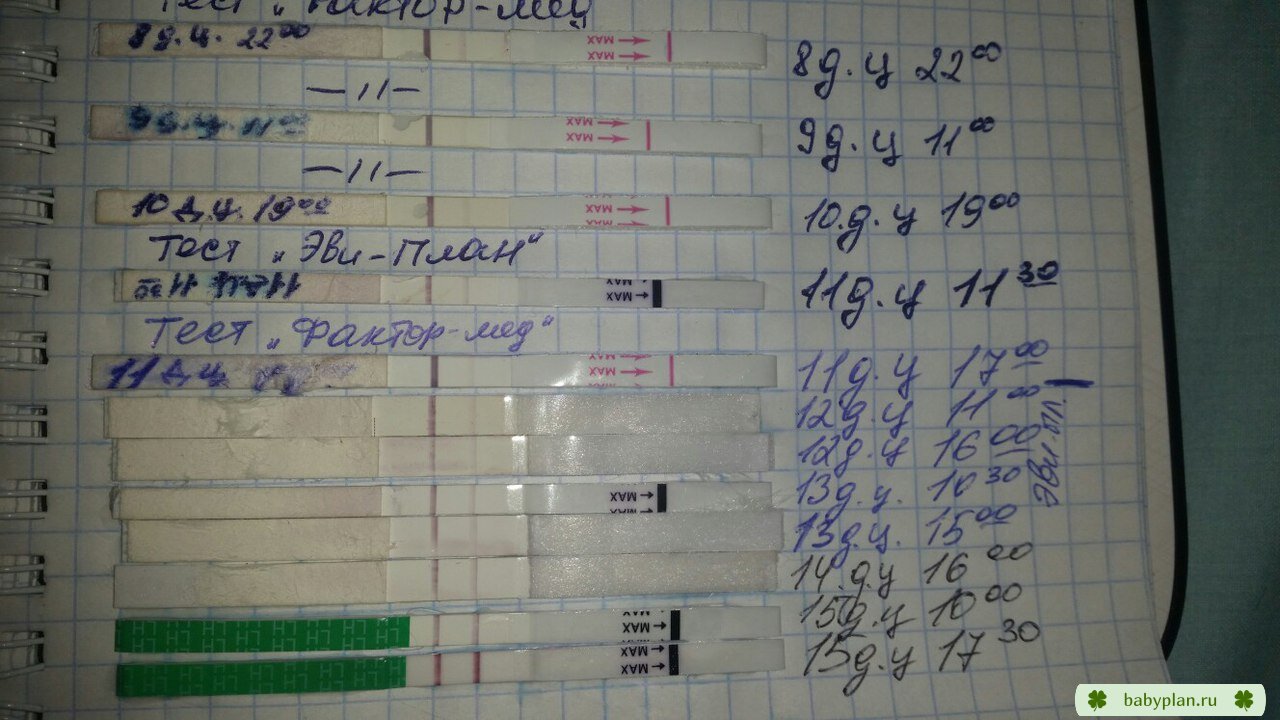 Тест „Фактор-мед
8 д.ц. 22⁰⁰ MAX MAX 8 д. ц 22⁰⁰
—//—
9 д.ц. 11⁰⁰ MAX MAX 9 д. ц 11⁰⁰
—//—
10 д.ц. 19⁰⁰ MAX MAX 10. д. ц 19⁰⁰
Тест „Эви-План“
11 д.ц. 11³⁰ MAX 11 д. ц 11³⁰
Тест „Фактор-мед“
11 д.ц MAX MAX MAX 11 д. ц 17⁰⁰
12 д. ц 11⁰⁰
12 д. ц 16⁰⁰
MAX 13 д. ц. 10³⁰ Эви-пл.
13 д. ц. 15⁰⁰
14. д. ц 16⁰⁰
LH LH LH LH MAX MAX 15 д. ц 10⁰⁰
LH LH LH LH MAX MAX 15 д. ц 17³⁰
babyplan.ru